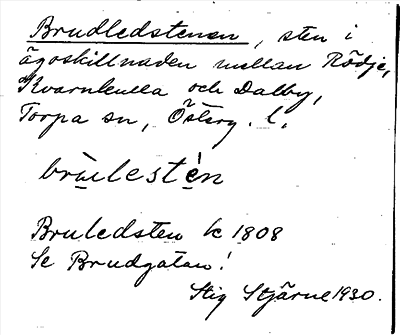 Brudledstenen, sten i
ägoskillnaden mellan Rödje,
Kvarnkulla och Dalby,
Torpa sn, Österg. l.
brùlestèn
Bruledsten lc 1808
Se Brudgatan!
Stig Stjärne 1930.